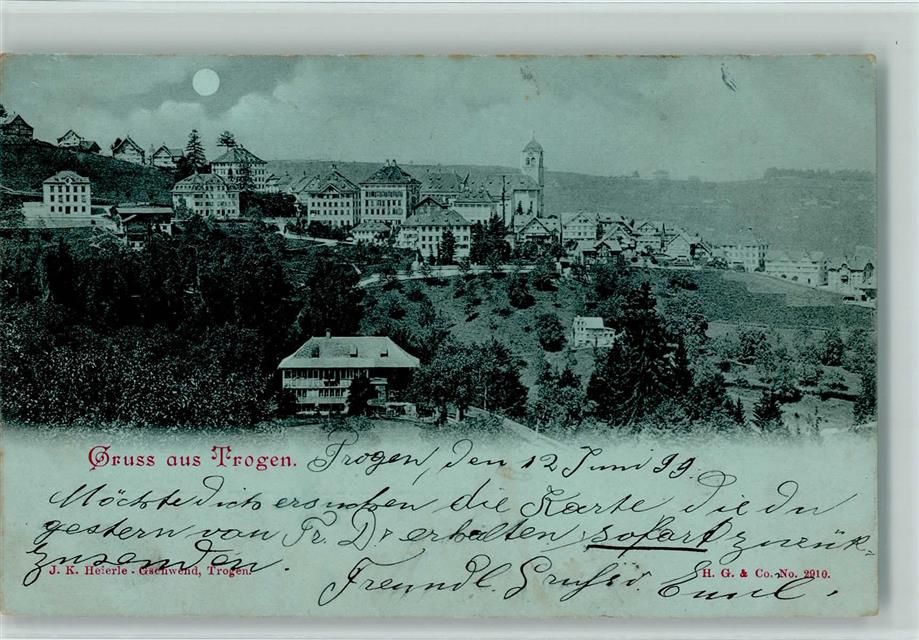 Gruss aus Trogen. Trogen, den 12 Juni 99.
Möchte Dich ersuchen die Karte die du
gestern von Fr. Dr erhalten sofort zurük-
zusenden.
Freundl. Grüsse v. Emil.
J. K. Heierle - Gschwend, Trogen.
H. G. & Co. No. 2910.